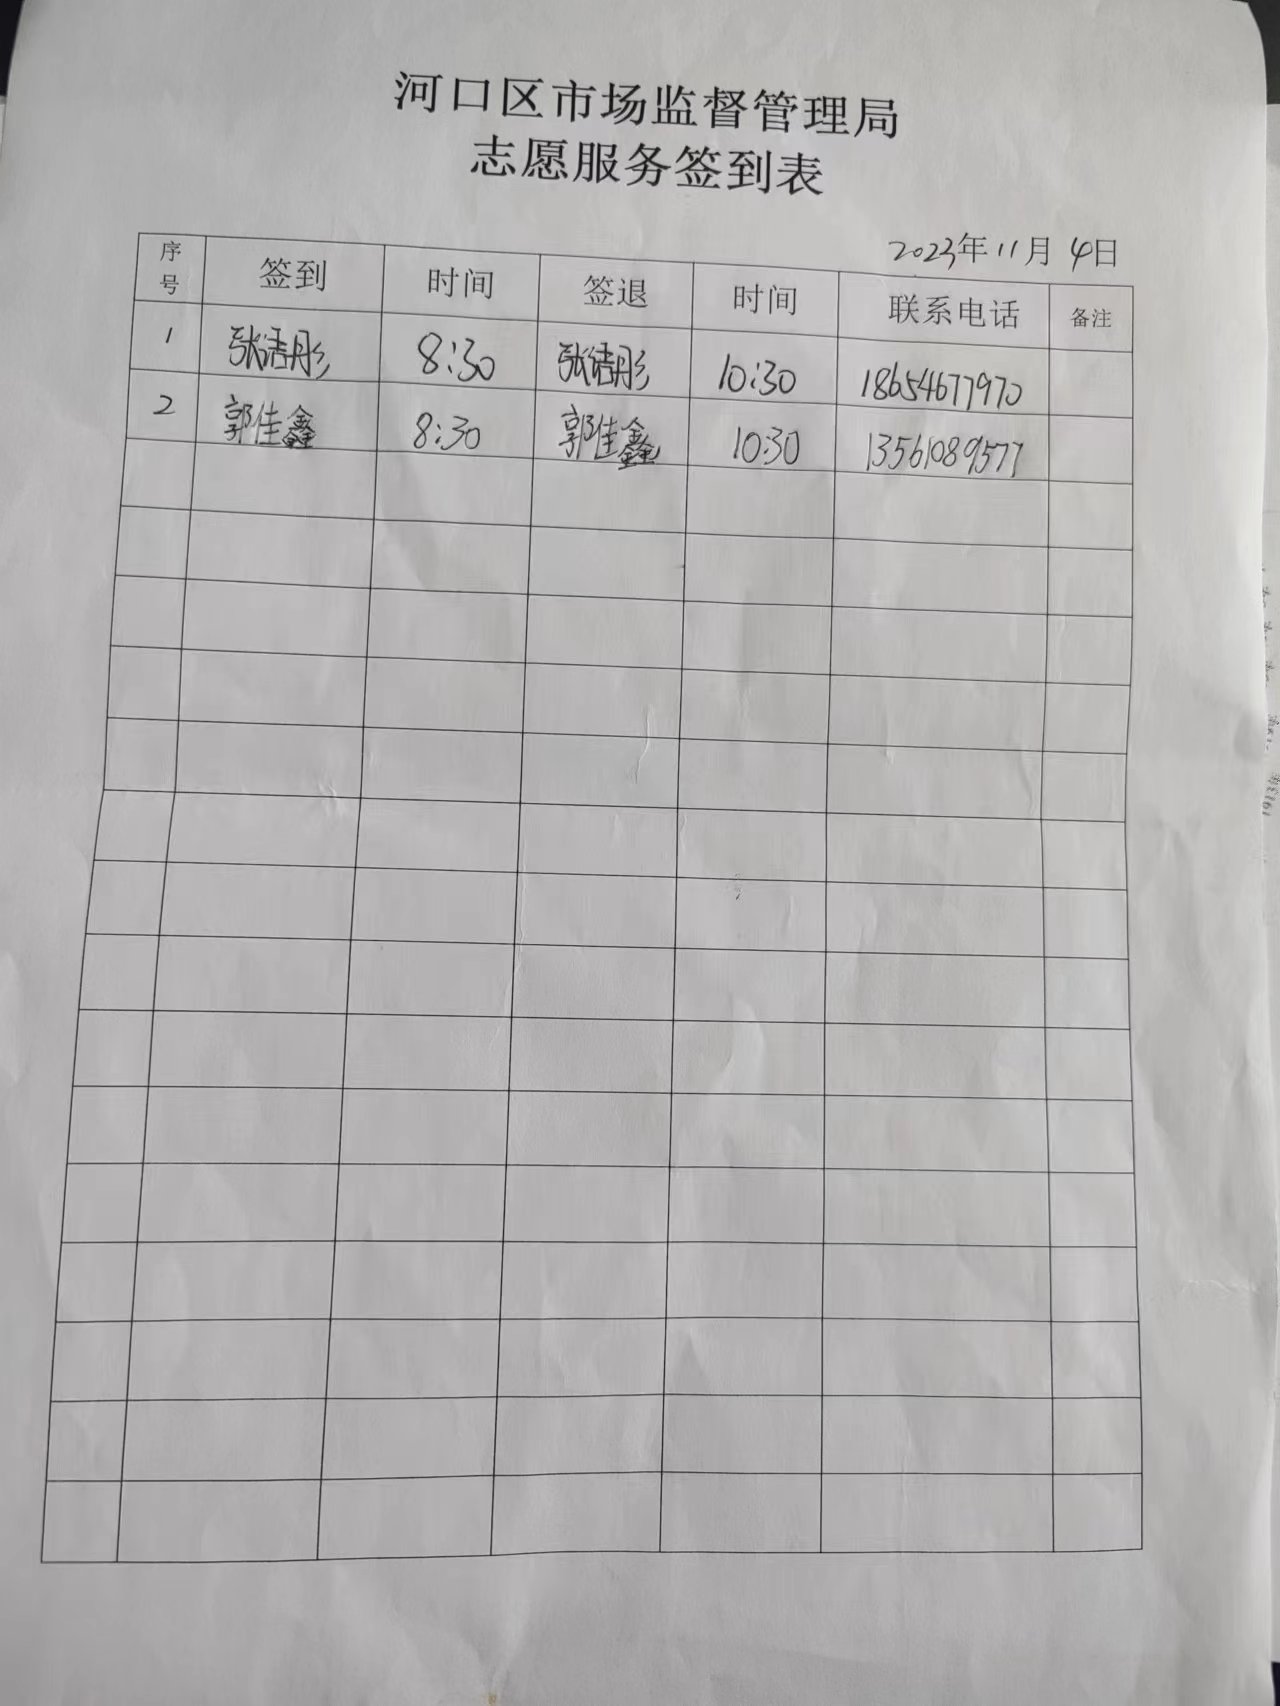 河口区市场监督管理局
志愿服务签到表
2023年11月4日
序号 签到 时间 签退 时间 联系电话 备注
1 张洁彤 8:30 张洁彤 10:30 18654677970
2 郭佳鑫 8:30 郭佳鑫 10:30 13561089577